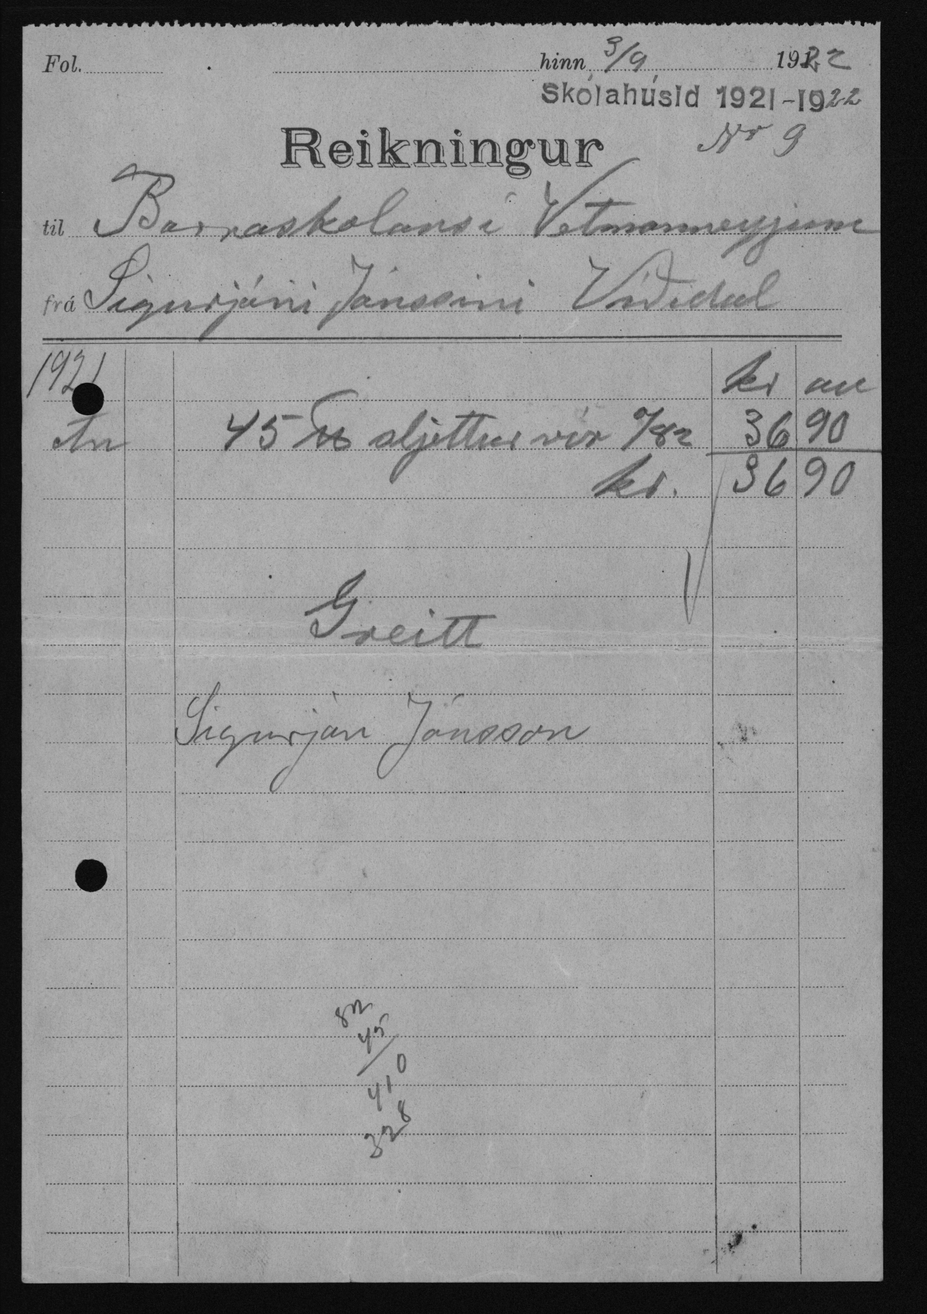 Fol. hinn 3/9 1922
Skólahúsid 1921-1922
Nr 9
Reikningur
til Barnaskolans í Vetmanneyjum
frá Sigurjóni Jónssini Viðidal
1921
kr au
45 sljettur vír %82 36 90
kr. 36 90
Greitt
Sigurjón Jónsson
82
45
410
328